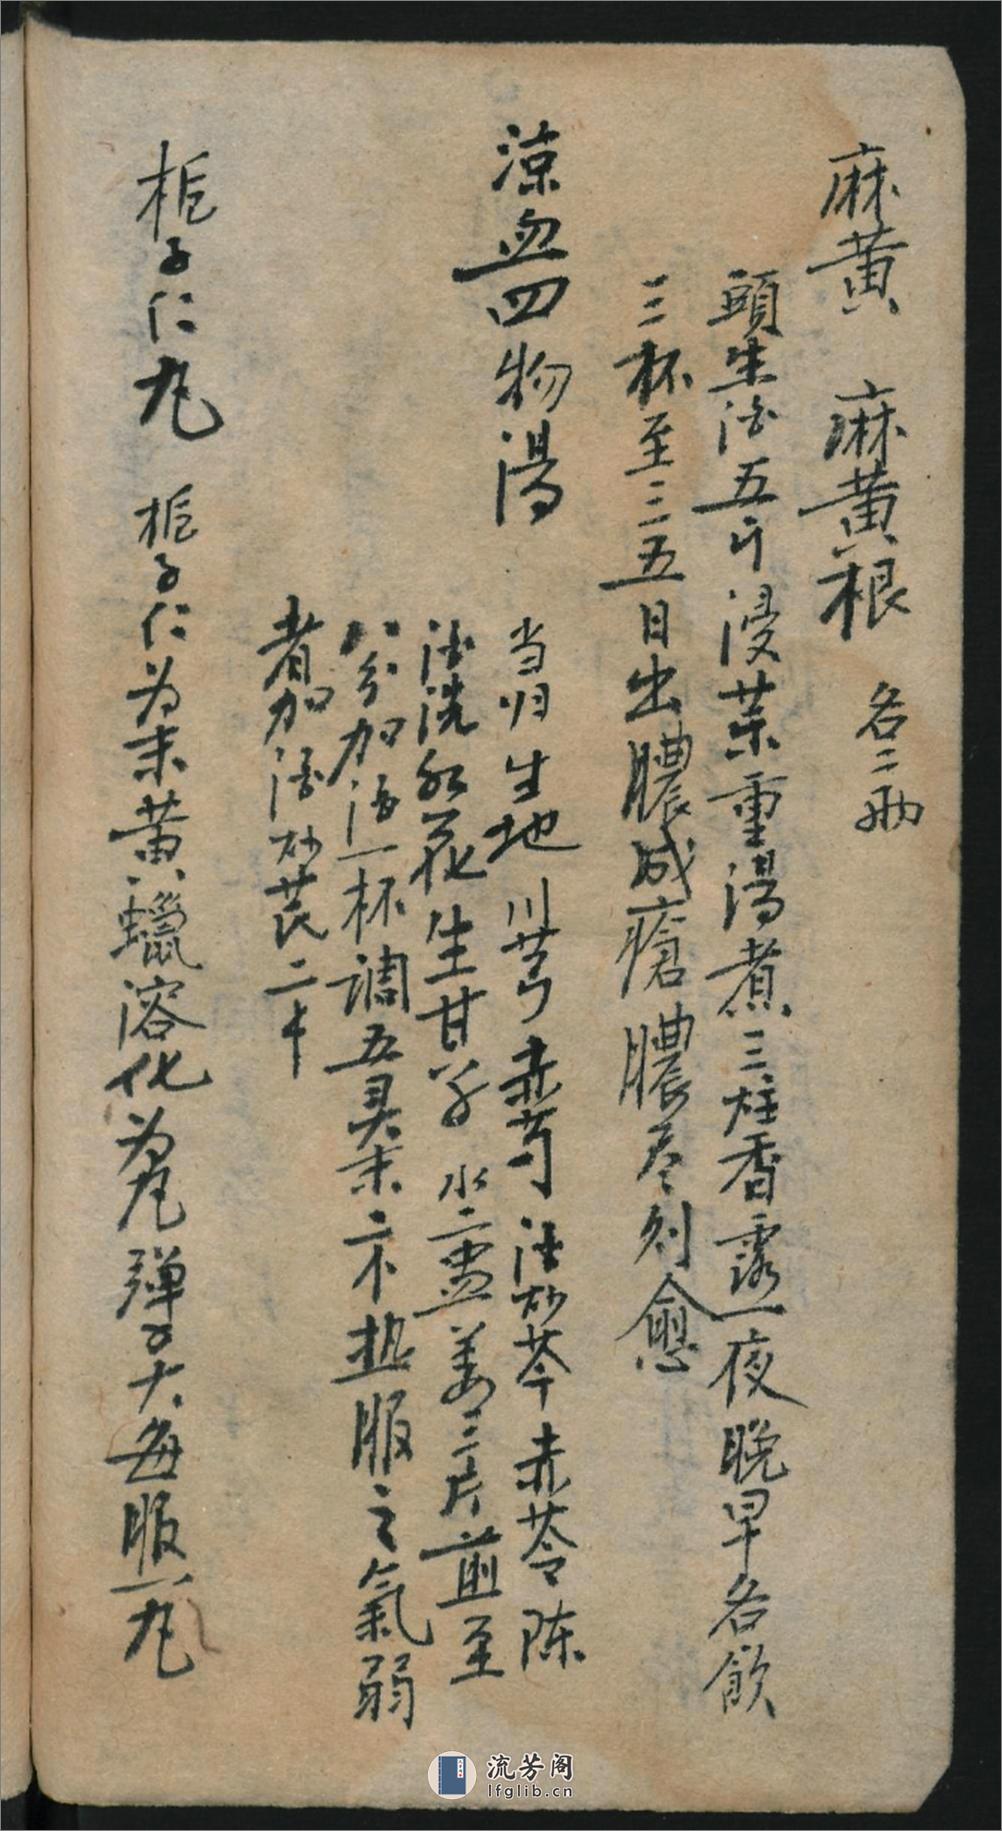 麻黄 麻黄根 各二兩
頭生酒五斤浸藥重湯煮三炷香露一夜晚早各飲
三杯至三五日出膿成瘡膿尽則愈
涼血四物湯
当归生地川芎赤芍酒炒芩赤苓陈
酒洗紅花生甘草水二盅姜三片煎至
八分加酒一杯調五灵末二不热服之氣弱
者加酒炒芪二
栀子仁丸 栀子仁为末黄蠟溶化为丸弹子大每服一丸
流芳阁
lfglib.cn